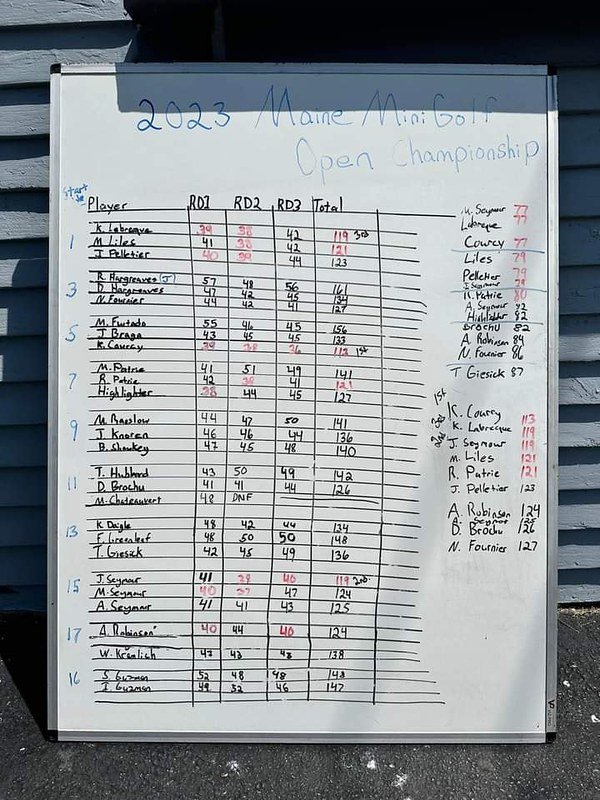 2023 Maine Mini Golf
Open Championship
Start
Player RD1 RD2 RD3 Total
K. Labreque 39 38 42 119 3rd
1 M. Liles 41 38 42 121
J. Pelletier 40 39 44 123
R. Hargreaves (J) 57 48 56 161
3 D. Hargreaves 47 42 45 134
N. Fournier 44 42 41 127
M. Furtado 55 46 45 156
5 J. Braga 43 45 45 133
K. Courcy 39 38 36 113 1st
M. Patrie 41 51 49 141
7 R. Patrie 42 38 41 121
Highlighter 38 44 45 127
M. Barslow 44 47 50 141
9 J. Knoren 46 46 44 136
B. Sharkey 47 45 48 140
T. Hubbard 43 50 49 142
11 D. Brochu 41 41 44 126
M. Chateauvert 48 DNF
K. Daigle 48 42 44 134
13 F. Greenleaf 48 50 50 148
T. Giesick 42 45 49 136
J. Seymour 41 38 40 119 2nd
15 M. Seymour 40 37 47 124
A. Seymour 41 41 43 125
17 A. Robinson 40 44 40 124
W. Kremlich 47 43 48 138
S. Guzman 52 48 48 148
16 I. Guzman 49 52 46 147
M. Seymour 77
Labreque 77
Courcy 77
Liles 79
Pelletier 79
J. Seymour 79
R. Patrie 80
A. Seymour 82
Highlighter 82
Brochu 82
A. Robinson 84
N. Fournier 86
T Giesick 87
1st K. Courcy 113
3rd K. Labrecque 119
2nd J. Seymour 119
M. Liles 121
R. Patrie 121
J. Pelletier 123
A. Robinson 124
A. Seymour 125
D. Brochu 126
N. Fournier 127